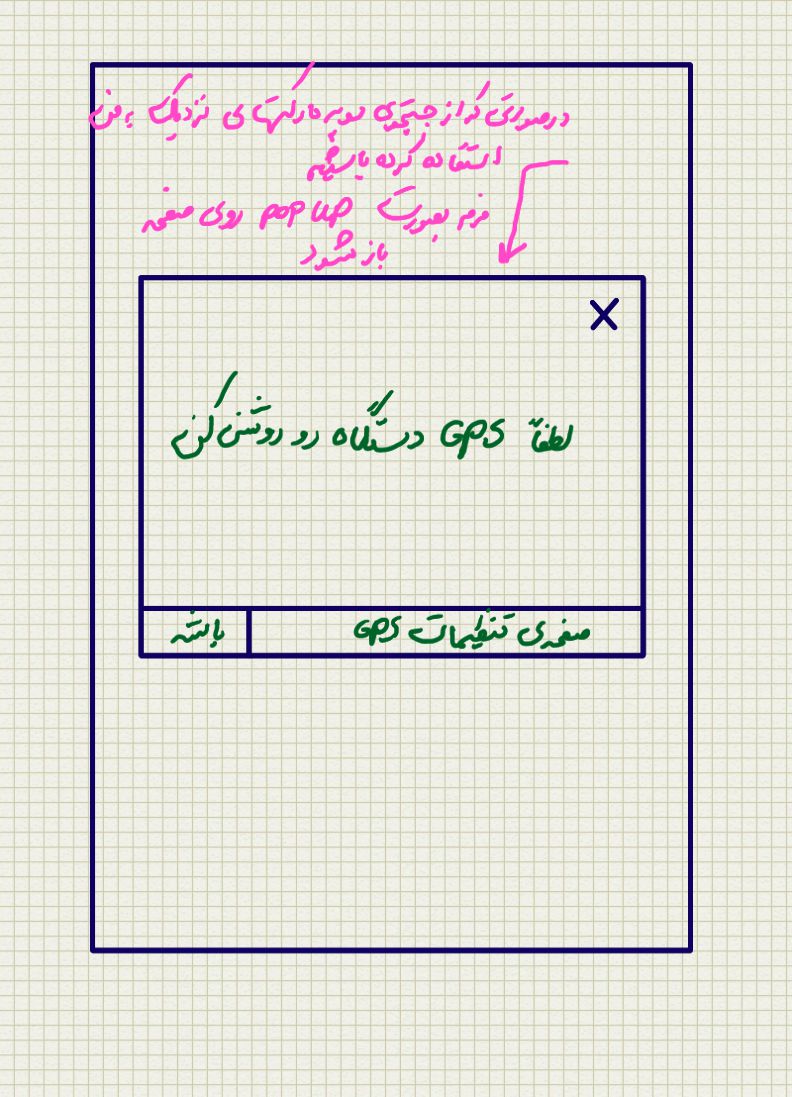 درصورتی که از جستجوی سوپر مارکتهای نزدیک به من
استفاده کرده باشیم
فرم بصورت POPUP روی صفحه
باز شود
X
لطفاً GPS دستگاه رو روشن کن
صفحه‌ی تنظیمات GPS
باشه